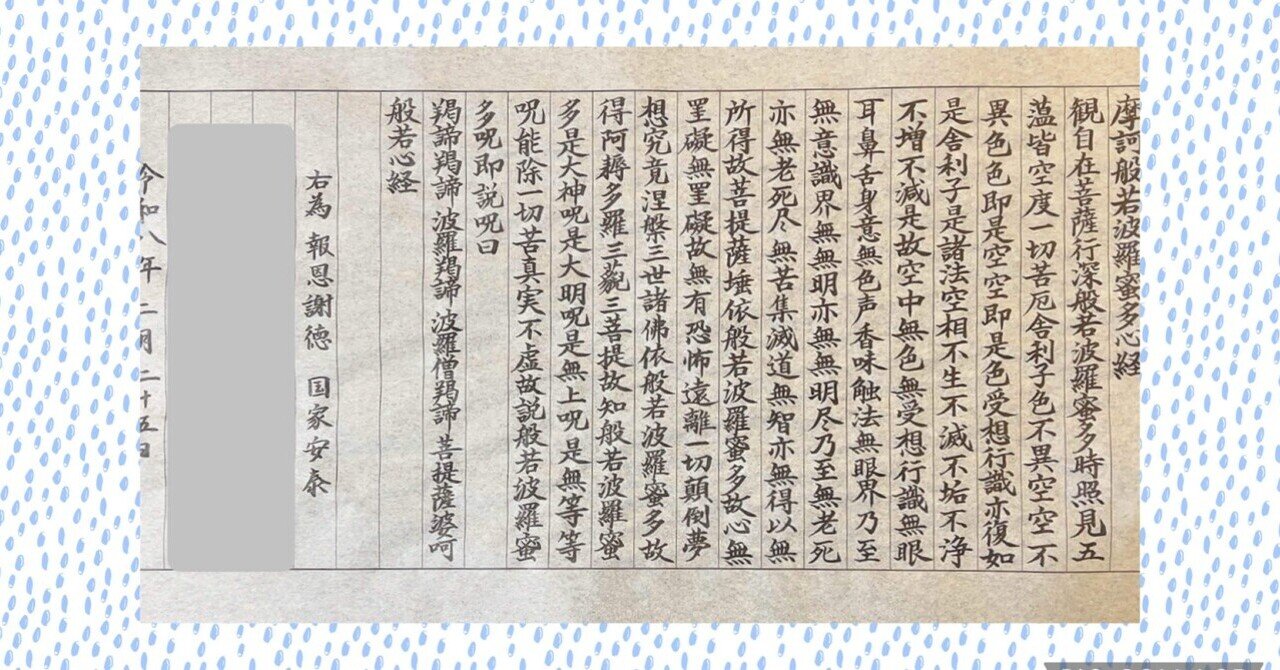 摩訶般若波羅蜜多心経
観自在菩薩行深般若波羅蜜多時照見五
薀皆空度一切苦厄舎利子色不異空空不
異色色即是空空即是色受想行識亦復如
是舎利子是諸法空相不生不滅不垢不浄
不増不減是故空中無色無受想行識無眼
耳鼻舌身意無色声香味触法無眼界乃至
無意識界無無明亦無無明尽乃至無老死
亦無老死尽無苦集滅道無智亦無得以無
所得故菩提薩埵依般若波羅蜜多故心無
罣礙無罣礙故無有恐怖遠離一切顛倒夢
想究竟涅槃三世諸佛依般若波羅蜜多故
得阿耨多羅三藐三菩提故知般若波羅蜜
多是大神呪是大明呪是無上呪是無等等
呪能除一切苦真実不虚故説般若波羅蜜
多呪即説呪曰
羯諦羯諦波羅羯諦波羅僧羯諦菩提薩婆呵
般若心経
右為 報恩謝徳 国家安泰
令和八年 二月 二十五日